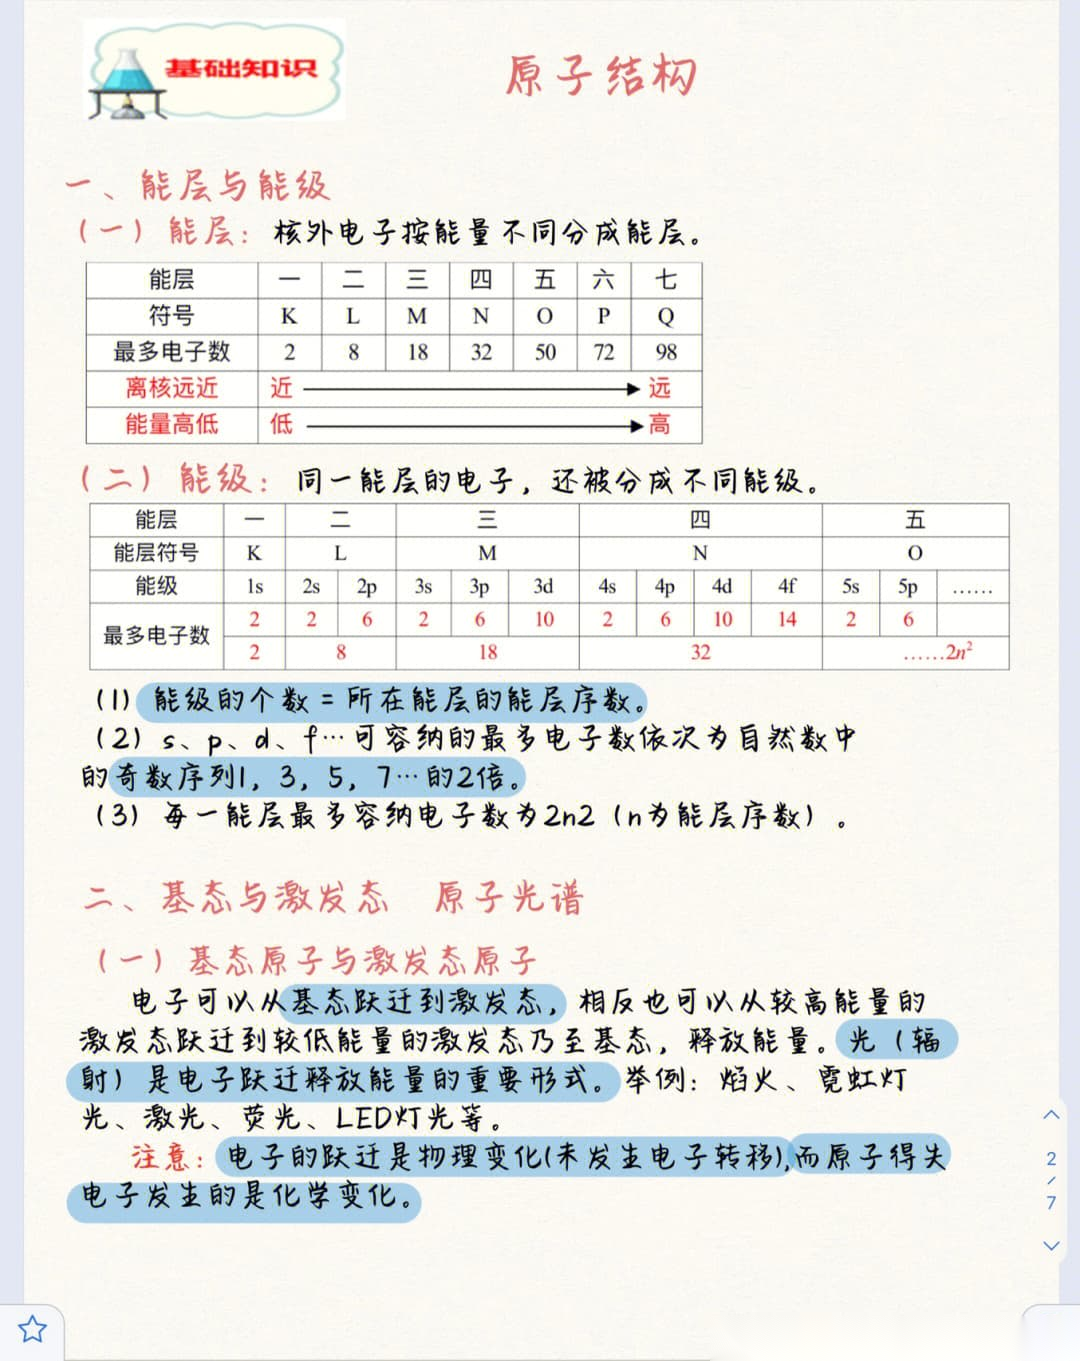 基础知识
原子结构
一、能层与能级
(一) 能层: 核外电子按能量不同分成能层。
能层 一 二 三 四 五 六 七
符号 K L M N O P Q
最多电子数 2 8 18 32 50 72 98
离核远近 近 远
能量高低 低 高
(二) 能级: 同一能层的电子, 还被分成不同能级。
能层 一 二 三 四 五
能层符号 K L M N O
能级 1s 2s 2p 3s 3p 3d 4s 4p 4d 4f 5s 5p ……
最多电子数 2 2 6 2 6 10 2 6 10 14 2 6
2 8 18 32 ……2n²
(1) 能级的个数 = 所在能层的能层序数。
(2) s、p、d、f…可容纳的最多电子数依次为自然数中
的奇数序列1, 3, 5, 7…的2倍。
(3) 每一能层最多容纳电子数为2n2 (n为能层序数) 。
二、基态与激发态 原子光谱
(一) 基态原子与激发态原子
电子可以从基态跃迁到激发态, 相反也可以从较高能量的
激发态跃迁到较低能量的激发态乃至基态, 释放能量。光 (辐
射) 是电子跃迁释放能量的重要形式。举例: 焰火、霓虹灯
光、激光、荧光、LED灯光等。
注意: 电子的跃迁是物理变化(未发生电子转移),而原子得失
电子发生的是化学变化。
2
/
7